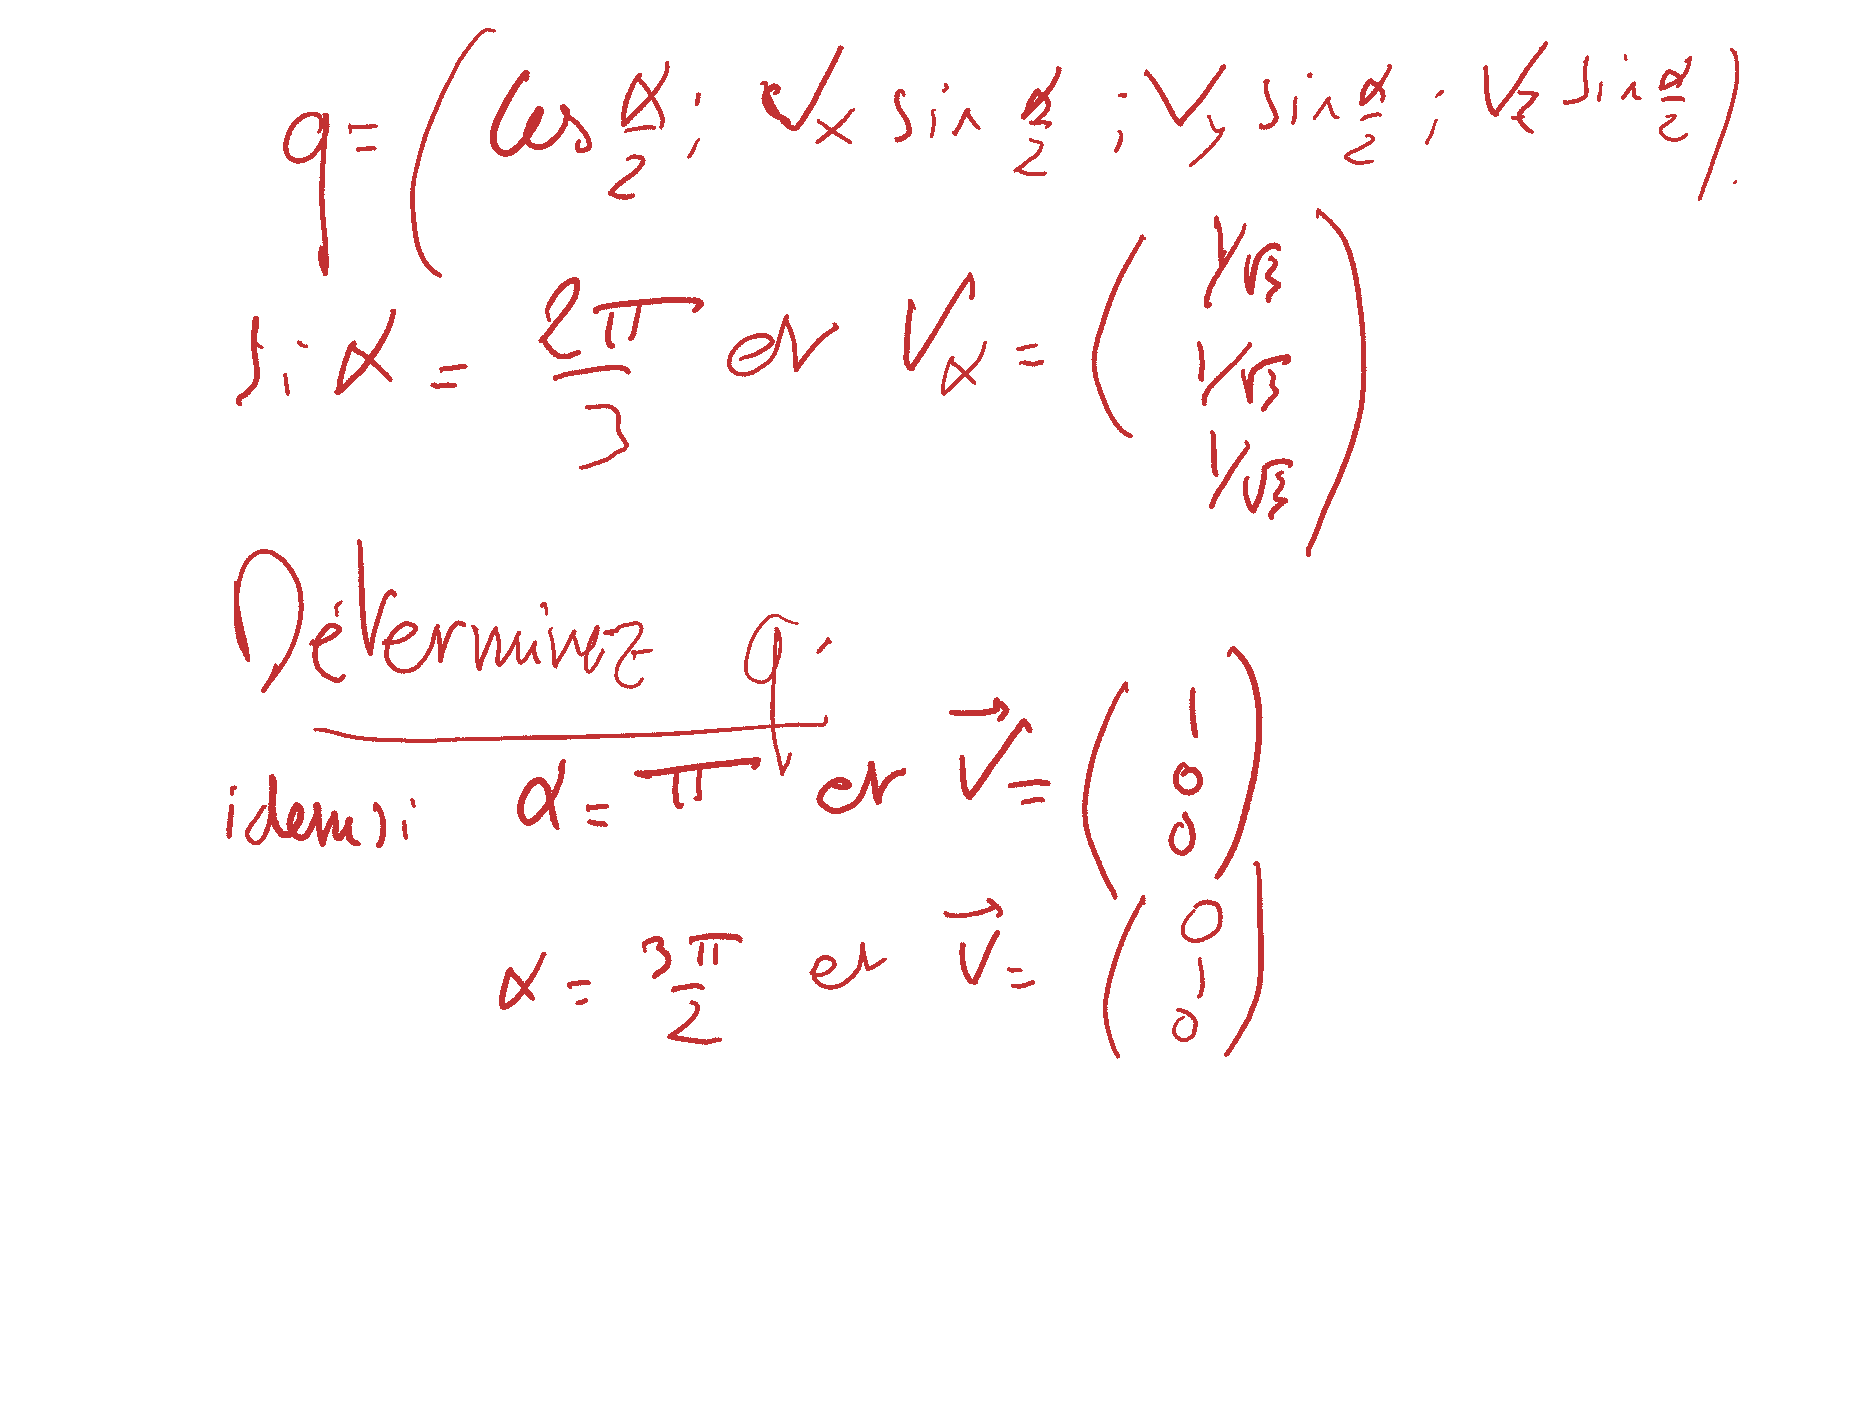 q = ( cos α/2 ; Vx sin α/2 ; Vy sin α/2 ; Vz sin α/2 ).
si α = 2π/3 et Vα = ( 1/√3 1/√3 1/√3 )
Déterminez q.
idem si α = π et V⃗ = ( 1 0 0 )
α = 3π/2 et V⃗ = ( 0 1 0 )